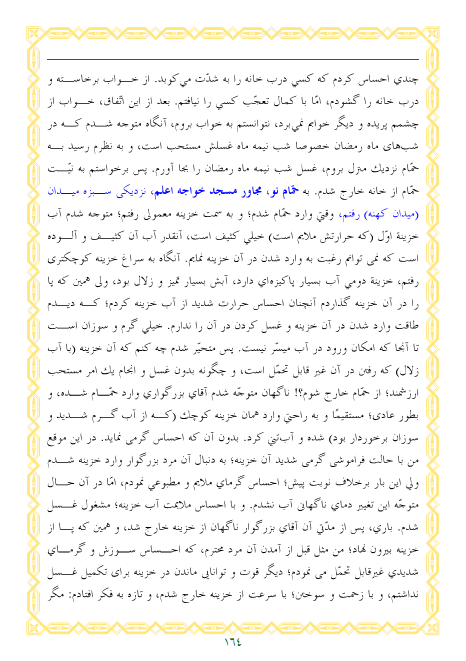 چندي احساس كردم كه كسي درب خانه را به شدّت مي‌كوبد. از خـــواب برخاســـته و
درب خانه را گشودم، امّا با كمال تعجّب كسي را نيافتم. بعد از اين اتّفاق، خـــواب از
چشمم پريده و ديگر خوابم نمي‌برد، نتوانستم به خواب بروم، آنگاه متوجه شـــدم كـــه در
شب‌هاى ماه رمضان خصوصا شب نيمه ماه غسلش مستحب است، و به نظرم رسيد بـــه
حمّام نزديك منزل بروم، غسل شب نيمه ماه رمضان را بجا آورم. پس برخواستم به نيّـــت
حمّام از خانه خارج شدم. به حمّام نو، مجاور مسجد خواجه اعلم، نزديكى ســـبزه ميـــدان
(ميدان كهنه) رفتم، وقتي وارد حمّام شدم؛ و به سمت خزينه معمولى رفتم؛ متوجه شدم آب
خزينة اوّل (كه حرارتش ملايم است) خيلي كثيف است، آنقدر آب آن كثيـــف و آلـــوده
است كه نمى توانم رغبت به وارد شدن در آن خزينه نمايم. آنگاه به سراغ خزينه كوچكترى
رفتم، خزينة دومي آب بسيار پاكيزه‌اي دارد، آبش بسيار تميز و زلال بود، ولى همين كه پا
را در آن خزينه گذاردم آنچنان احساس حرارت شديد از آب خزينه كردم؛ كـــه ديـــدم
طاقت وارد شدن در آن خزينه و غسل كردن در آن را ندارم. خيلي گرم و سوزان اســـت
تا آنجا كه امكان ورود در آب ميسّر نيست. پس متحيّر شدم چه كنم كه آن خزينه (با آب
زلال) كه رفتن در آن غير قابل تحمّل است، و چگونه بدون غسل و انجام يك امر مستحب
ارزشمند؛ از حمّام خارج شوم؟! ناگهان متوجّه شدم آقاي بزرگواري وارد حمّـــام شـــده، و
بطور عادى؛ مستقيمًا و به راحتي وارد همان خزينه كوچك (كـــه از آب گـــرم شـــديد و
سوزان برخوردار بود) شده و آب‌تنى كرد. بدون آن كه احساس گرمى نمايد. در اين موقع
من با حالت فراموشى گرمى شديد آن خزينه؛ به دنبال آن مرد بزرگوار وارد خزينه شـــدم
ولي اين بار برخلاف نوبت پيش؛ احساس گرماي ملايم و مطبوعي نمودم، امّا در آن حـــال
متوجّه اين تغيير دماي ناگهانى آب نشدم. و با احساس ملائمت آب خزينه؛ مشغول غـــسل
شدم. بارى، پس از مدّتي آن آقاي بزرگوار ناگهان از خزينه خارج شد، و همين كه پـــا از
خزينه بيرون نهاد؛ من مثل قبل از آمدن آن مرد محترم، كه احـــساس ســـوزش و گرمـــاي
شديدي غيرقابل تحمّل مى نمودم؛ ديگر قوت و توانايى ماندن در خزينه براى تكميل غـــسل
نداشتم، و با زحمت و سوختن؛ با سرعت از خزينه خارج شدم، و تازه به فكر افتادم: مگر
١٦٤